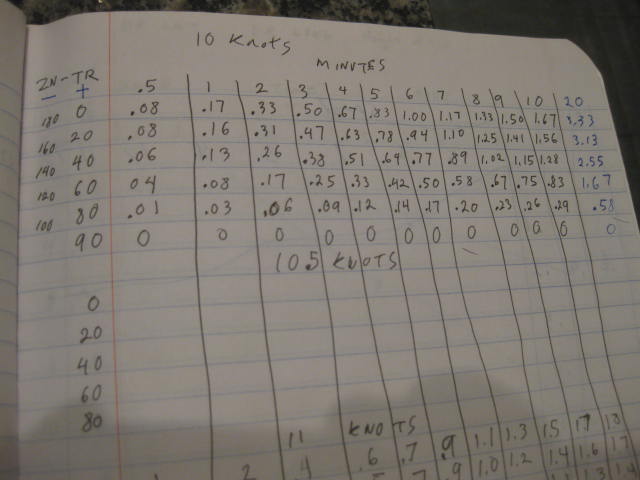 10 Knots
MINUTES
ZN-TR .5 1 2 3 4 5 6 7 8 9 10 20
- +
180 0 .08 .17 .33 .50 .67 .83 1.00 1.17 1.33 1.50 1.67 3.33
160 20 .08 .16 .31 .47 .63 .78 .94 1.10 1.25 1.41 1.56 3.13
140 40 .06 .13 .26 .38 .51 .64 .77 .89 1.02 1.15 1.28 2.55
120 60 04 .08 .17 .25 .33 .42 .50 .58 .67 .75 .83 1.67
100 80 .01 .03 .06 .09 .12 .14 .17 .20 .23 .26 .29 .58
90 0 0 0 0 0 0 0 0 0 0 0 0
10.5 KNOTS
0
20
40
60
80
11 KNOTS
.6 .7 .9 1.1 1.3 1.5 17 18
2 .4 .9 1.0 1.2 1.4 1.6